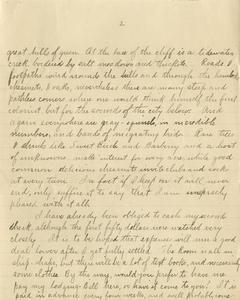 2
great hills of green. At the base of the cliff is a tidewater
creek bordered by salt meadows and thickets. Roads &
footpaths wind around the hills and through the hemlock,
chestnuts, & oaks, nevertheless there are many steep and
pathless corners where one would think himself the first
colonist, but for the sounds of the city below. And
again everywhere are gray-squirrels, in incredible
numbers, and bands of migrating birds. Rare trees
& shrubs like Sweet Birch and Barberry and a host
of unknowns, make interest for every one, while good
common delicious chestnuts
nuts. I'm
end, only suffice it to say that I am
pleased with it all.
I have already been obliged to cash my second
check, although the first fifty dollars were watched very
closely. It is to be hoped that expenses will mend a good
deal lower after I get fully settled. The room well in
ship-shape, but there will be a lot of text books, and
some clothes. By the way, would you prefer to have me
pay my lodging-bill here, or have it come to you? It is
paid in advance every four-weeks, and will probably